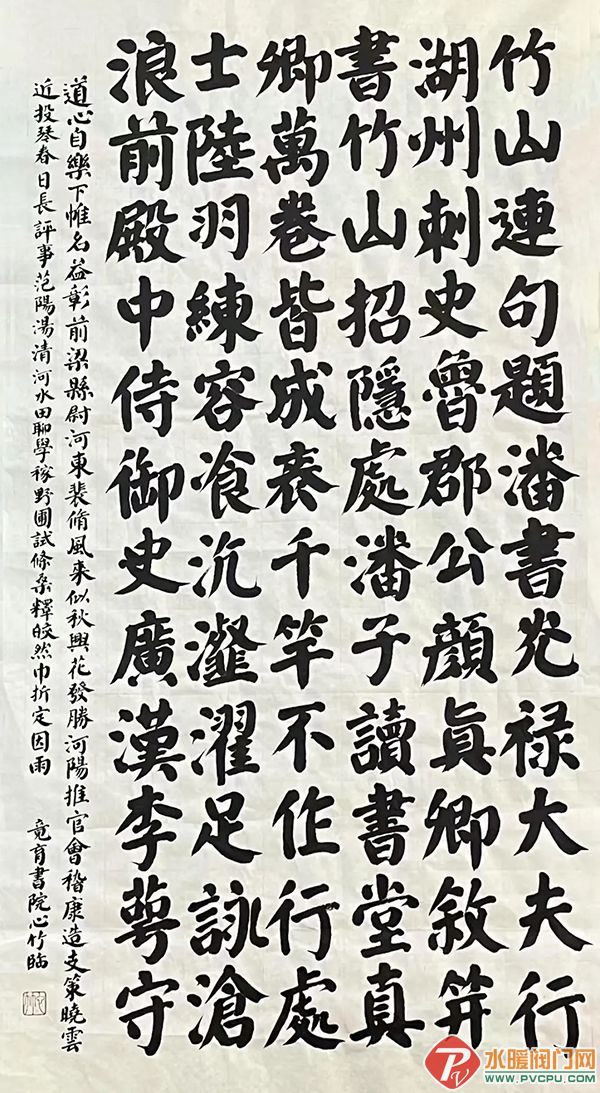 竹山連句題潘書光禄大夫行
湖州刺史魯郡公顔真卿敘并
書竹山招隱處潘子讀書堂真
卿萬卷皆成袠千竿不作行處
士陸羽練容飡沆瀣濯足詠滄
浪前殿中侍御史廣漢李萼守
道心自樂下帷名益彰前梁縣尉河東裴脩風来似秋興花發勝河陽推官會稽康造支策曉雲
近投琴春日長評事范陽湯清河水田聊學稼野圃試條桑釋皎然巾折定因雨
竟育書院心竹臨
水暖阀门网
WWW.PVCPU.COM